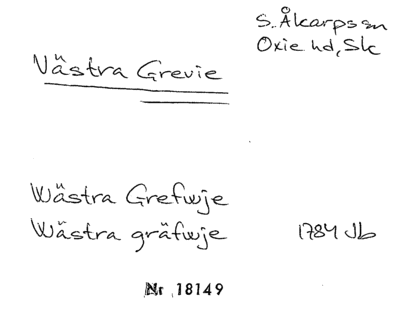 S. Åkarps sn
Oxie hd, Sk
Västra Grevie
Wästra Grefwje
Wästra gräfwje 1784 Jb
Nr 18149